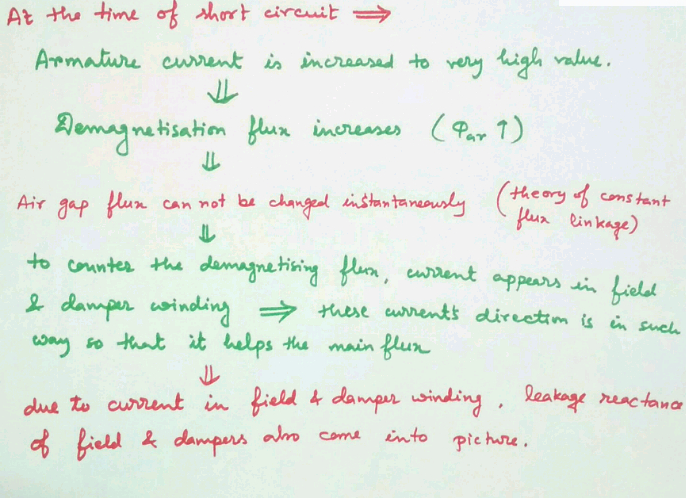 At the time of short circuit ⇒
Armature current is increased to very high value.
⇓
Demagnetisation flux increases (Φar ↑)
⇓
Air gap flux can not be changed instantaneously (theory of constant
flux linkage)
⇓
to counter the demagnetising flux, current appears in field
& damper winding ⇒ these current's direction is in such
way so that it helps the main flux
⇓
due to current in field & damper winding, leakage reactance
of field & dampers also come into picture.